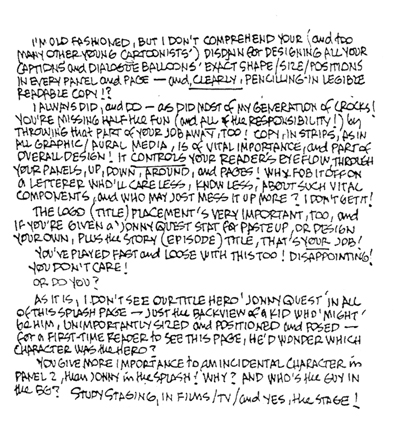 I'M OLD FASHIONED, BUT I DON'T COMPREHEND YOUR (and too
MANY OTHER YOUNG CARTOONISTS') DISDAIN for DESIGNING ALL YOUR
CAPTIONS and DIALOGUE BALLOONS' EXACT SHAPE/SIZE/POSITIONS
IN EVERY PANEL and PAGE — and, CLEARLY, PENCILLING-IN LEGIBLE
READABLE COPY!?
I ALWAYS DID, and DO — as DID MOST of MY GENERATION of CROCKS!
YOU'RE MISSING HALF the FUN (and ALL of the RESPONSIBILITY!) by
THROWING that PART of YOUR JOB AWAY, TOO! COPY, IN STRIPS, AS IN
ALL GRAPHIC/AURAL MEDIA, IS of VITAL IMPORTANCE, and PART of
OVERALL DESIGN! IT CONTROLS YOUR READER'S EYE FLOW, THROUGH
YOUR PANELS, UP, DOWN, AROUND, and PAGES! WHY FOB IT OFF ON
A LETTERER WHO'LL CARE LESS, KNOW LESS, ABOUT SUCH VITAL
COMPONENTS, and WHO MAY JUST MESS IT UP MORE? I DON'T GET IT!
THE LOGO (TITLE) PLACEMENT'S VERY IMPORTANT, TOO, and
IF YOU'RE GIVEN a 'JONNY QUEST' STAT for PASTEUP, OR DESIGN
YOUR OWN, PLUS the STORY (EPISODE) TITLE, THAT'S YOUR JOB!
YOU'VE PLAYED FAST and LOOSE WITH THIS TOO! DISAPPOINTING!
YOU DON'T CARE!
OR DO YOU?
AS IT IS, I DON'T SEE OUR TITLE HERO 'JONNY QUEST' IN ALL
of THIS SPLASH PAGE — JUST the BACKVIEW of A KID WHO 'MIGHT'
be HIM, UNIMPORTANTLY SIZED and POSITIONED and POSED —
for A FIRST-TIME READER to SEE THIS PAGE, HE'D WONDER WHICH
CHARACTER WAS the HERO?
YOU GIVE MORE IMPORTANCE to AN INCIDENTAL CHARACTER in
PANEL 2, than JONNY in the SPLASH! WHY? AND WHO'S the GUY IN
the BG? STUDY STAGING, IN FILMS/TV/and YES, the STAGE!